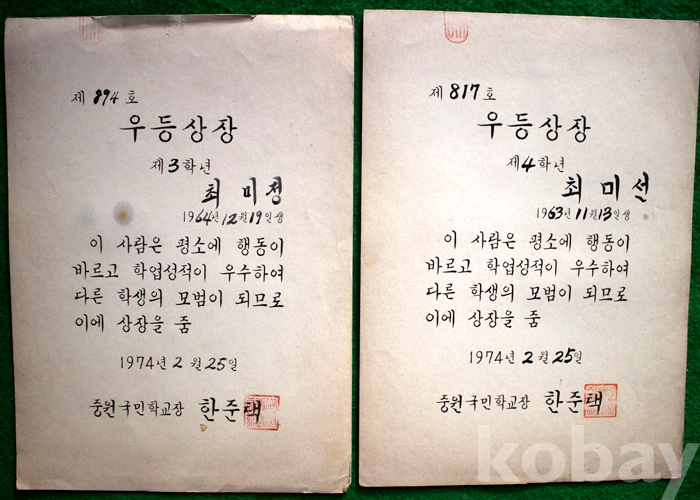 제 894 호
우등상장
제3학년
최미정
1964년 12월 19일생
이 사람은 평소에 행동이
바르고 학업성적이 우수하여
다른 학생의 모범이 되므로
이에 상장을 줌
1974년 2월 25일
중원국민학교장 한준택
제 817 호
우등상장
제4학년
최미선
1963년 11월 13일생
이 사람은 평소에 행동이
바르고 학업성적이 우수하여
다른 학생의 모범이 되므로
이에 상장을 줌
1974년 2월 25일
중원국민학교장 한준택
kobay